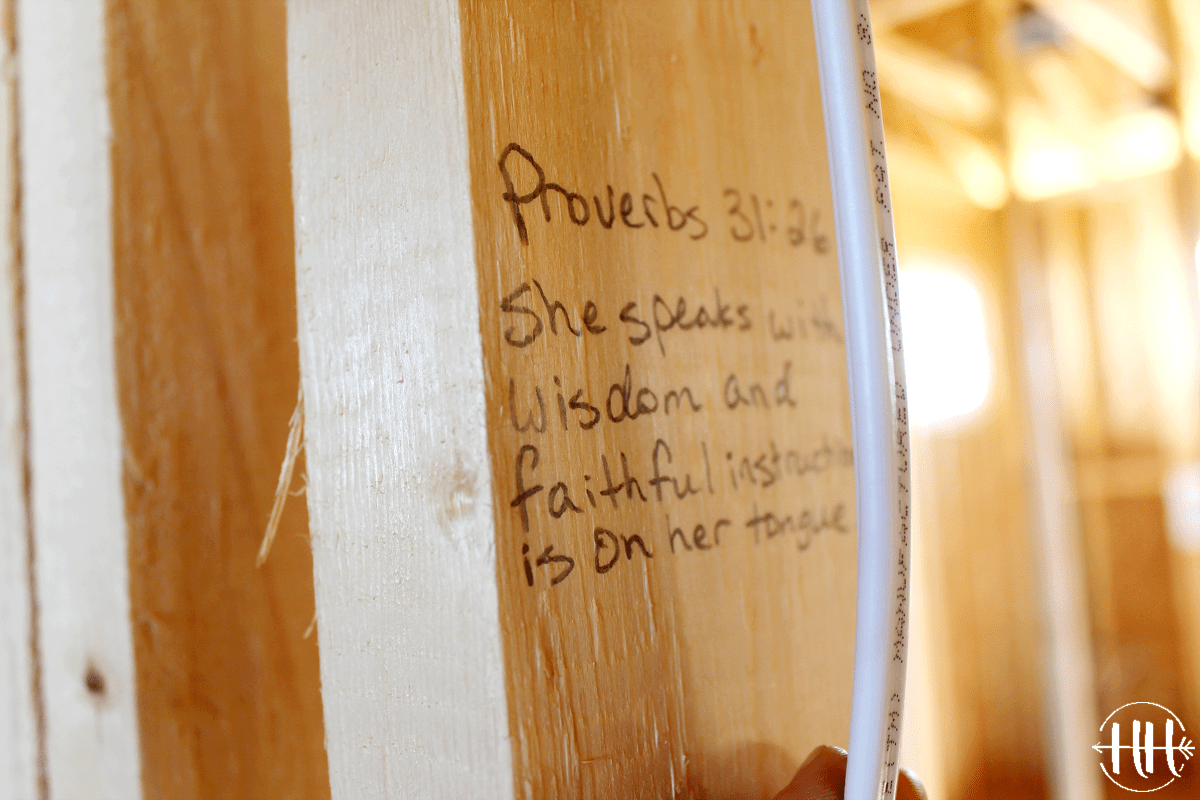 Proverbs 31:26
She speaks with
wisdom and
faithful instruction
is on her tongue